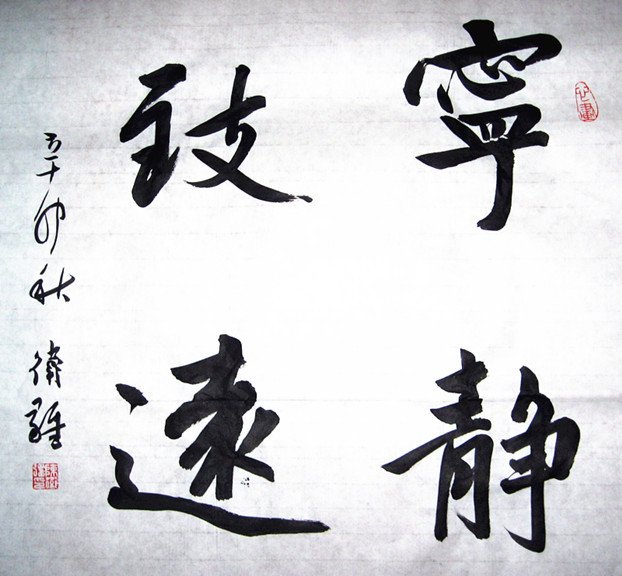 寧靜
致遠
辛卯秋